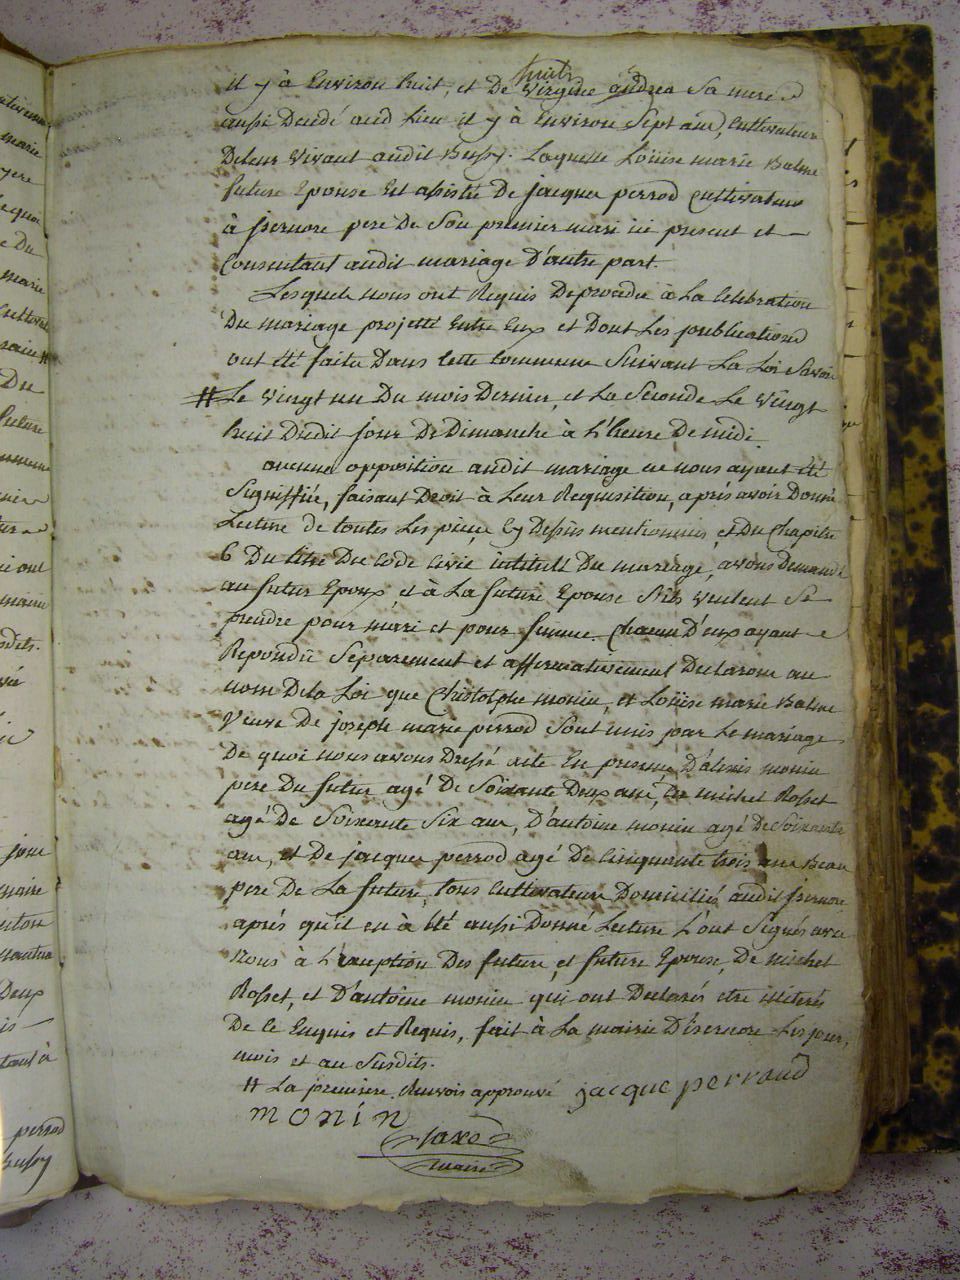 huit
il y à Environ huit, et De Virginie andrea Sa mere
aussi Decedé aud Lieu il y à Environ Sept ans, Cultivateurs
De leur Vivant audit Bussy. Laquelle Loüise marie Balme
future Epouse Est assisté De jacques perrod Cultivateur
à jsernore pere De Son premier mari ici present et
Consentant audit mariage D'autre part.
Lesquels nous ont Requis De proceder à La Celebration
Du mariage projetté Entre Eux et Dont Les publications
ont Eté faites Dans Cette Commune Suivant La Loi Savoir
# Le Vingt un Du mois Dernier, et La Seconde Le Vingt
huit Dudit jour De Dimanche à L'heure De midi.
aucune opposition audit mariage ne nous ayant été
Signiffiée, faisant Droit à Leur Requisition, aprés avoir Donné
Lecture de toutes Les pieces Cy Dessus mentionnées, et Du Chapitre
6 Du titre Du Code Civil intitulé Du mariage, avons Demandé
au futur Epoux, et à La future Epouse S'ils veulent Se
prendre pour mari et pour femme. Chacun D'eux ayant
Repondu Separement et affirmativement Declarons au
nom De la Loi que Christolphe monin, et Loüise marie Balme
Veuve De joseph marie perrod Sont unis par Le mariage
De quoi nous avons Dressé acte En presence D'alexis monin
pere Du futur agé De Soixante Deux ans, De michel Rosset
agé De Soixante Six ans, D'antoine monin agé De Soixante
ans, et De jacques perrod agé De Cinquante trois ans Beau
pere De La future, tous Cultivateurs Domiciliés audit jsernore
aprés qu'il en à Eté aussi Donné Lecture L'ont Signés avec
Nous a L'exception Des future, et future Epouse, De michel
Rosset, et D'antoine monin qui ont Declarés etre illiterés
De Ce Enquis et Requis, fait à La mairie D'isernore Les jour,
mois et an Susdits.
# La premiere. Renvois approuvé jacque perraud
monin
maire